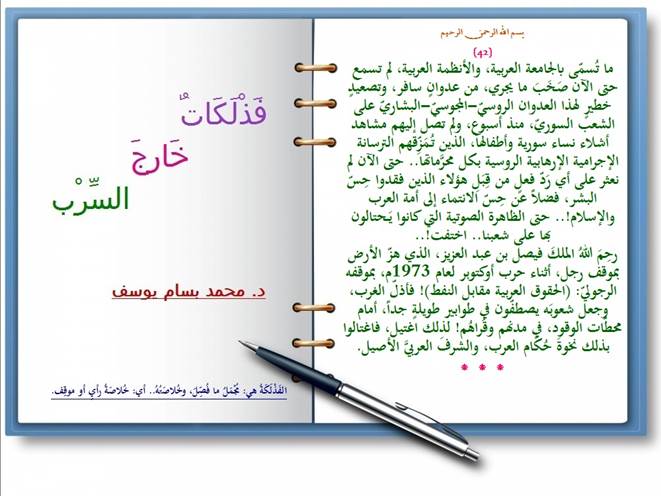 بسم الله الرحمن الرحيم
(42)
ما تُسمّى بالجامعة العربية، والأنظمة العربية، لم تسمع
حتى الآن صَخَبَ ما يجري، من عدوانٍ سافر، وتصعيدٍ
خطيرٍ لهذا العدوان الروسيّ–المجوسيّ–البشاريّ على
الشعب السوريّ، منذ أسبوع، ولم تصل إليهم مشاهد
أشلاء نساء سورية وأطفالها، الذين تُمَزّقهم الترسانة
الإجرامية الإرهابية الروسية بكل محرَّماتها.. حتى الآن لم
نعثر على أي رَدّ فعلٍ من قِبَلِ هؤلاء الذين فقدوا حِسّ
البشر، فضلاً عن حِسّ الانتماء إلى أمة العرب
والإسلام!.. حتى الظاهرة الصوتية التي كانوا يَحتالون
بها على شعبنا.. اختفت!..
رحِمَ اللهُ الملكَ فيصل بن عبد العزيز، الذي هزّ الأرض
بموقف رجل، أثناء حرب أوكتوبر لعام 1973م، بموقفه
الرجوليّ: (الحقوق العربية مقابل النفط)! فأذلّ الغرب،
وجعل شعوبَه يصطفّون في طوابير طويلةٍ جداً، أمام
محطّات الوقود، في مدنهم وقُراهم! لذلك اغتيل، فاغتالوا
بذلك نخوةَ حُكّام العرب، والشرفَ العربيَّ الأصيل.
* * *
فَذْلَكَاتٌ
خَارِجَ
السِّرْب
د. محمد بسام يوسف
الفَذْلَكَةُ هي: مُجْمَلُ ما فُصِّلَ، وخُلاصَتُهُ.. أي: خُلاصَةُ رأيٍ أو موقِف.